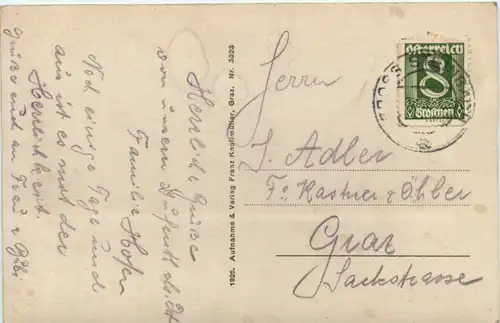 Noch einige Tage und
aus ist es mit der
Herrlichkeit.
Grüße auch an Frau u. Bubi
Herzliche Grüße
von unserem
Familie Hofer
1925. Aufnahme & Verlag Franz Knollmüller, Graz. Nr. 3323
Österreich
8
Groschen
Herrn
J. Adler
Fa. Kastner & Öhler
Graz
Sackstrasse